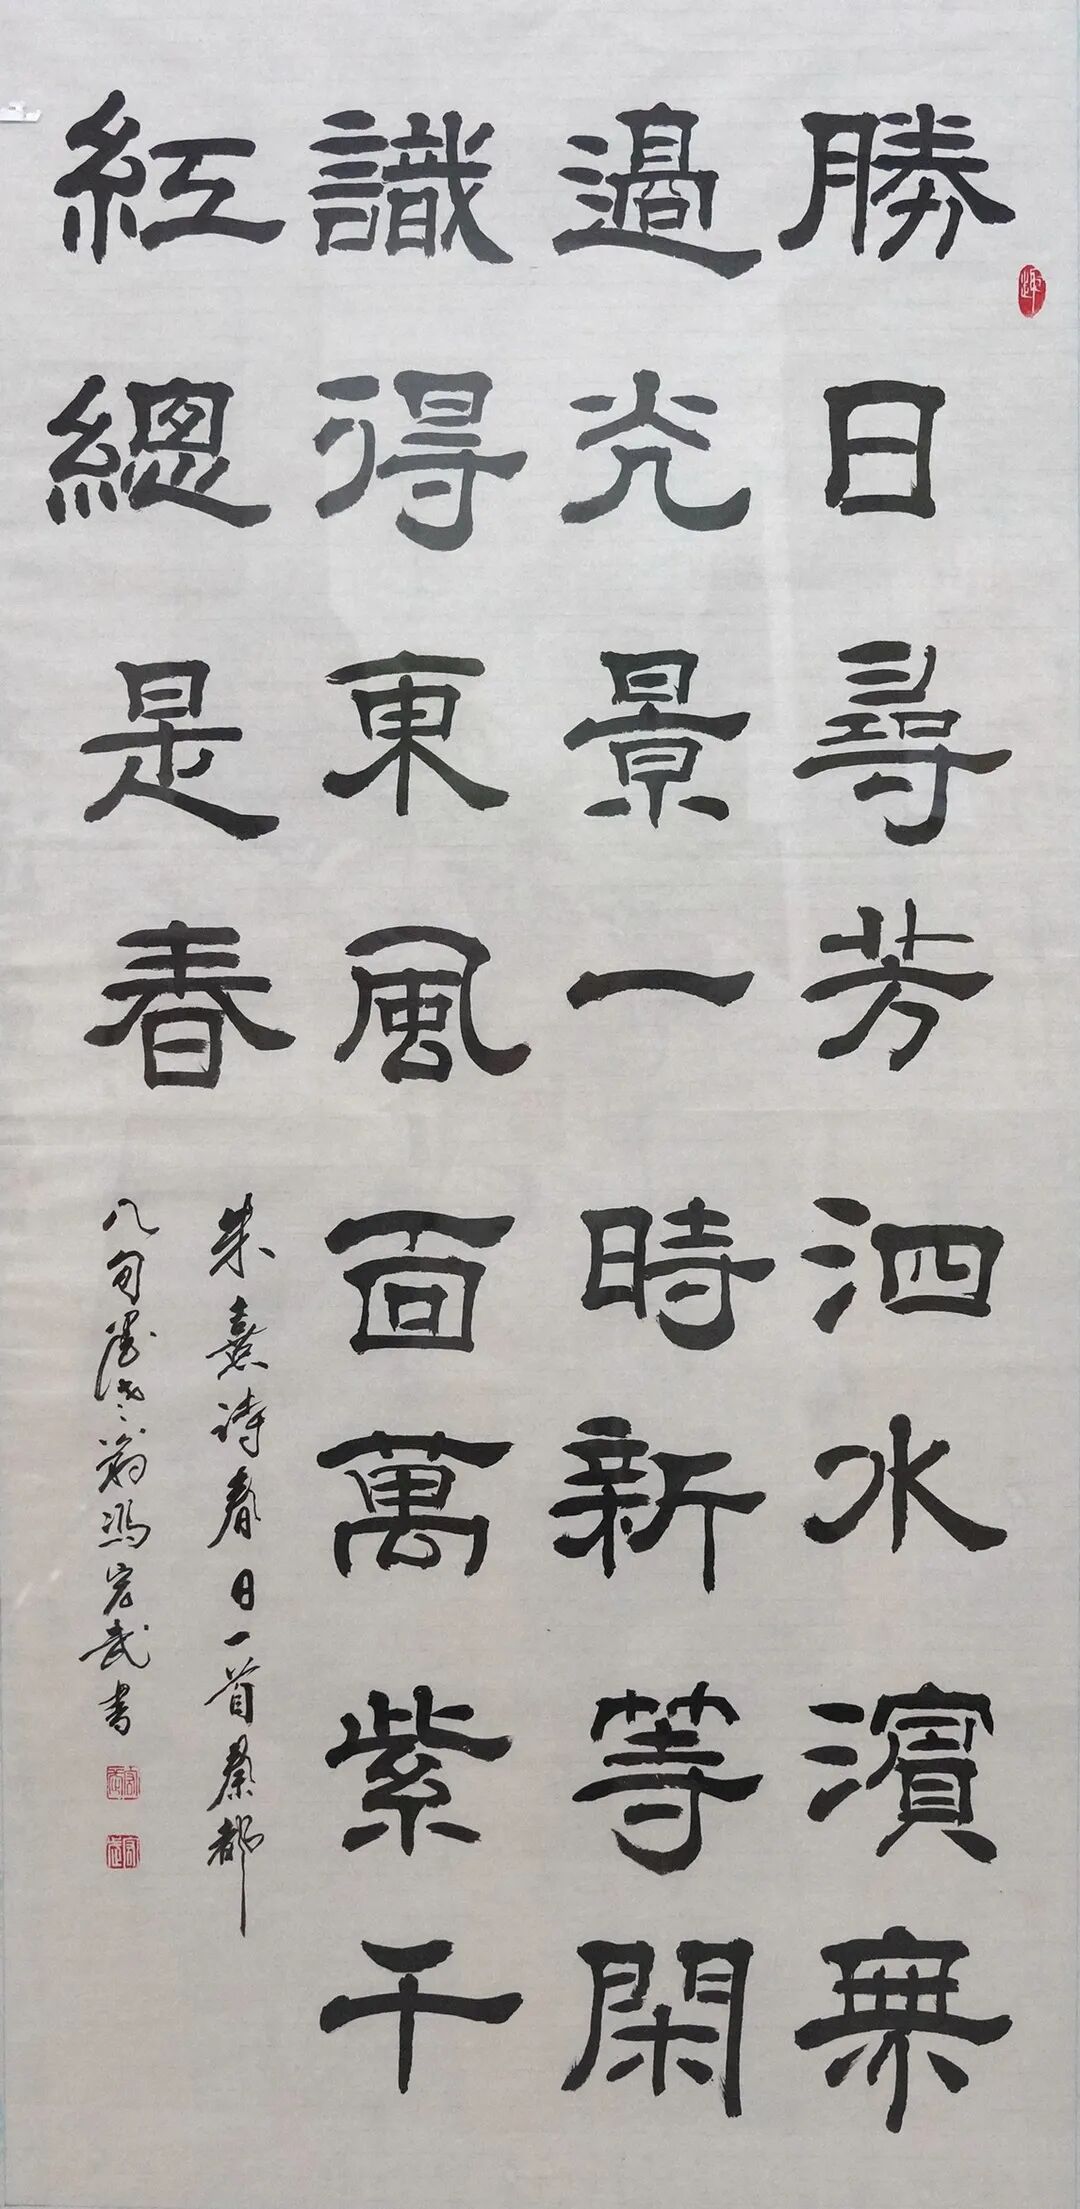 勝日尋芳泗水濱無
邊光景一時新等閑
識得東風面萬紫千
紅總是春
朱熹詩春日一首秦都
八旬翁馮宏武書
趣